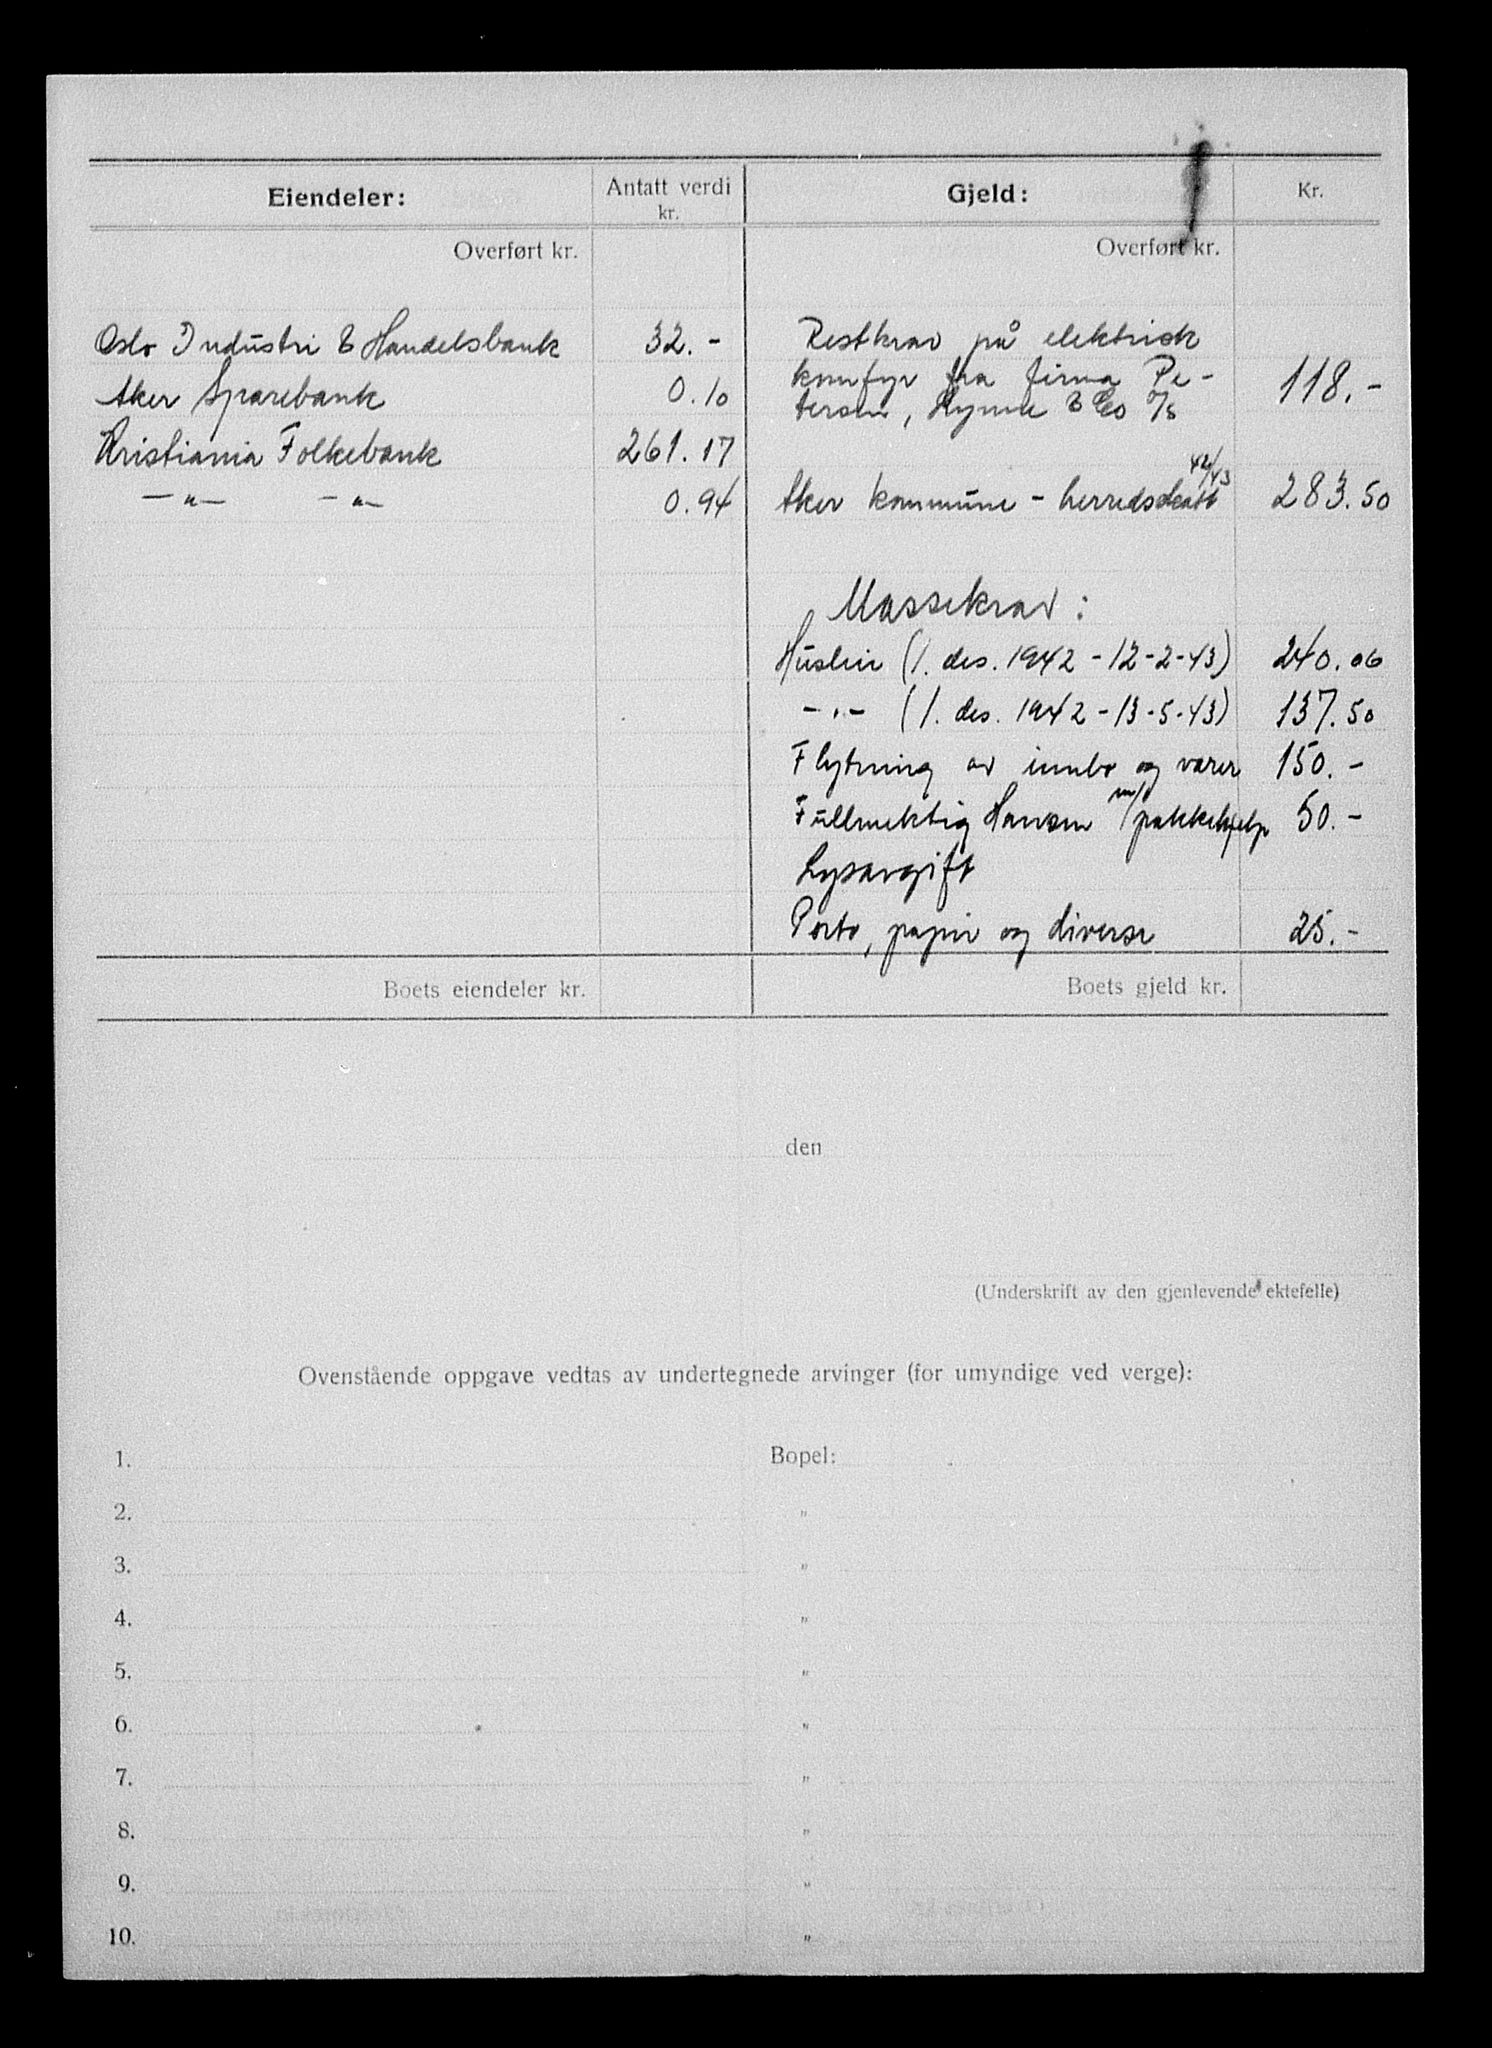 Eiendeler:
Antatt verdi
kr.
Gjeld:
Kr.
Overført kr.
Overført kr.
Oslo Industri & Handelsbank 32.-
Aker Sparebank 0.10
Kristiania Folkebank 261.17
—„— —„— 0.94
Restkrav på elektrisk
komfyr fra firma Pe-
tersen, & Co A/S 118.-
42/43
Aker kommune - herredsskatt 283.50
Massekrav:
Husleie (1. des. 1942 - 12-2-43) 240.06
-„- (1. des. 1942 - 13-5-43) 137.50
Flytning av innbo og varer 150.-
Fullmektig Hansen m/pakkehjelp 50.-
Lysavgift
Porto, papir og diverse 25.-
Boets eiendeler kr.
Boets gjeld kr.
den
(Underskrift av den gjenlevende ektefelle)
Ovenstående oppgave vedtas av undertegnede arvinger (for umyndige ved verge):
1. Bopel:
2. „
3. „
4. „
5. „
6. „
7. „
8. „
9. „
10. „